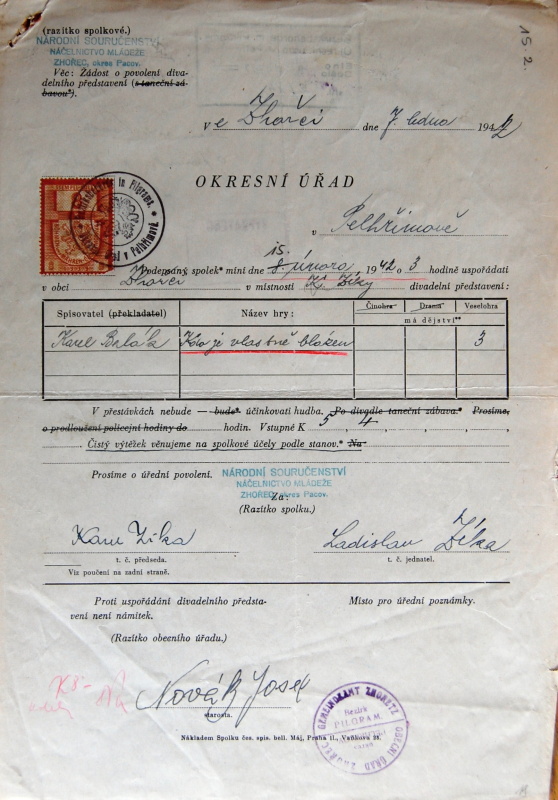 15. 2.
(razítko spolkové.)
NÁRODNÍ SOURUČENSTVÍ
NÁČELNICTVO MLÁDEŽE
ZHOŘEC, okres Pacov.
Věc: Žádost o povolení diva-
delního představení (s taneční zá-
bavou*).
V e Zhořci dne 7. ledna 1942
OKRESNÍ ÚŘAD
v Pelhřimově
15.
Podepsaný spolek* míní dne 8. února 1942 o 3 hodině uspořádati
v obci Zhořci v místnosti K. Ziky divadelní představení:
Spisovatel (překladatel) Název hry: Činohra Drama Veselohra
má dějství**
Karel Balák Kdo je vlastně blázen 3
V přestávkách nebude — bude* účinkovati hudba. Po divadle taneční zábava.* Prosíme,
o prodloužení policejní hodiny do hodin. Vstupné K 5, 4
Čistý výtěžek věnujeme na spolkové účely podle stanov.* Na
Prosíme o úřední povolení.
NÁRODNÍ SOURUČENSTVÍ
NÁČELNICTVO MLÁDEŽE
ZHOŘEC, okres Pacov.
Za:
(Razítko spolku.)
Karel Zíka Ladislav Zíka
t. č. předseda. t. č. jednatel.
Viz poučení na zadní straně.
Proti uspořádání divadelního předsta-
vení není námitek.
Místo pro úřední poznámky.
(Razítko obecního úřadu.)
Novák Josef
starosta.
GEMEINDEAMT ZHORETZ
OBECNÍ ÚŘAD ZHOŘEC
Bezirk
PILGRAM.
Nákladem Spolku čes. spis. bell. Máj, Praha II., Vaňkova 28.